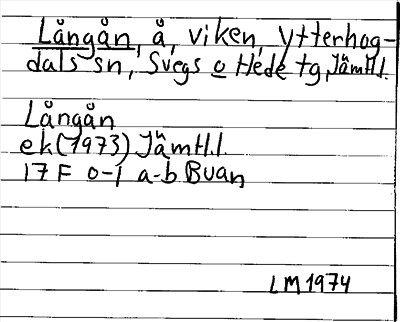 Långån, å, viken, Ytterhog-
dals sn, Svegs o Hede tg, Jämtl.l.
Långån
ek (1973) Jämtl.l.
17 F o-1 a-b Buan
LM 1974